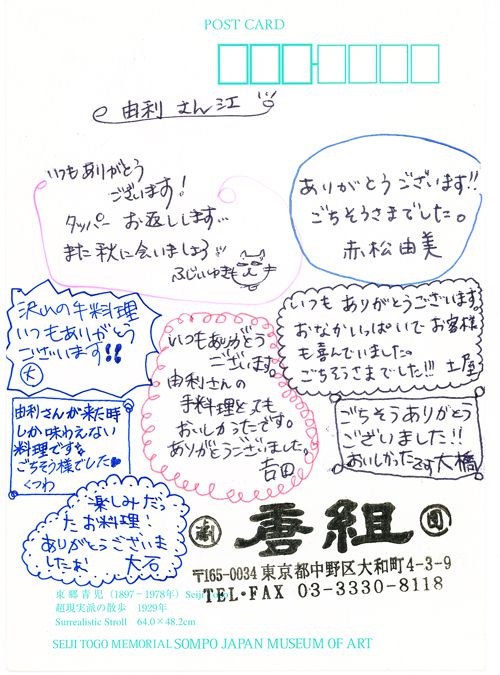 POST CARD
由利さん江
いつもありがとう
ございます!
タッパー お返しします…
また秋に会いましょう
ふじいゆき
ありがとうございます!!
ごちそうさまでした。
赤松由美
沢山の手料理
いつもありがとう
ございます!!
大
いつもありがとう
ございます。
由利さんの
手料理とても
おいしかったです。
ありがとうございました。
吉田
いつも ありがとうございます。
おなかいっぱいで お客様
も喜んでいました。
ごちそうさまでした!!! 土屋
由利さんが来た時
しか味わえない
料理です
ごちそう様でした
くつわ
ごちそうありがとう
ございました!!
おいしかったです 大橋
楽しみだっ
たお料理!
ありがとうございま
した 大石
劇 唐組 団
〒165-0034 東京都中野区大和町4-3-9
TEL・FAX 03-3330-8118
東郷青児 (1897-1978年) Seiji
超現実派の散歩 1929年
Surrealistic Stroll 64.0×48.2cm
SEIJI TOGO MEMORIAL SOMPO JAPAN MUSEUM OF ART